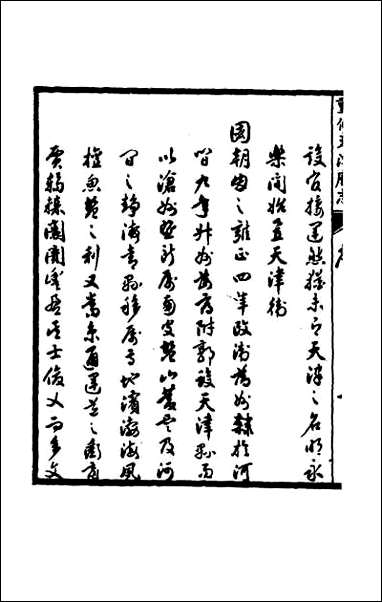 重修天津府志 序
設官接運然猶未有天津之名明永
樂間始天津衛
國朝因之雍正四年改衛為州隸於河
間九年升州為府附郭設天津縣而
以滄州暨所屬南皮鹽山慶雲及河
間之靜海青縣移屬焉地濱渤海風
擅魚鹽之利又當京通運道之衝商
賈輻輳闤闠士俊乂而多文